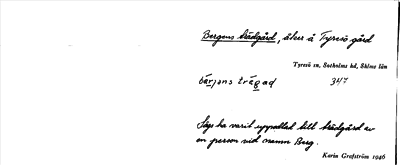 Bergens trädgård, åker å Tyresö gård
Tyresö sn, Sotholms hd, Sthlms län
bärjens trägad 347
Säges ha varit upplåtet till trädgård av
en person vid namn Berg.
Karin Grafström 1946